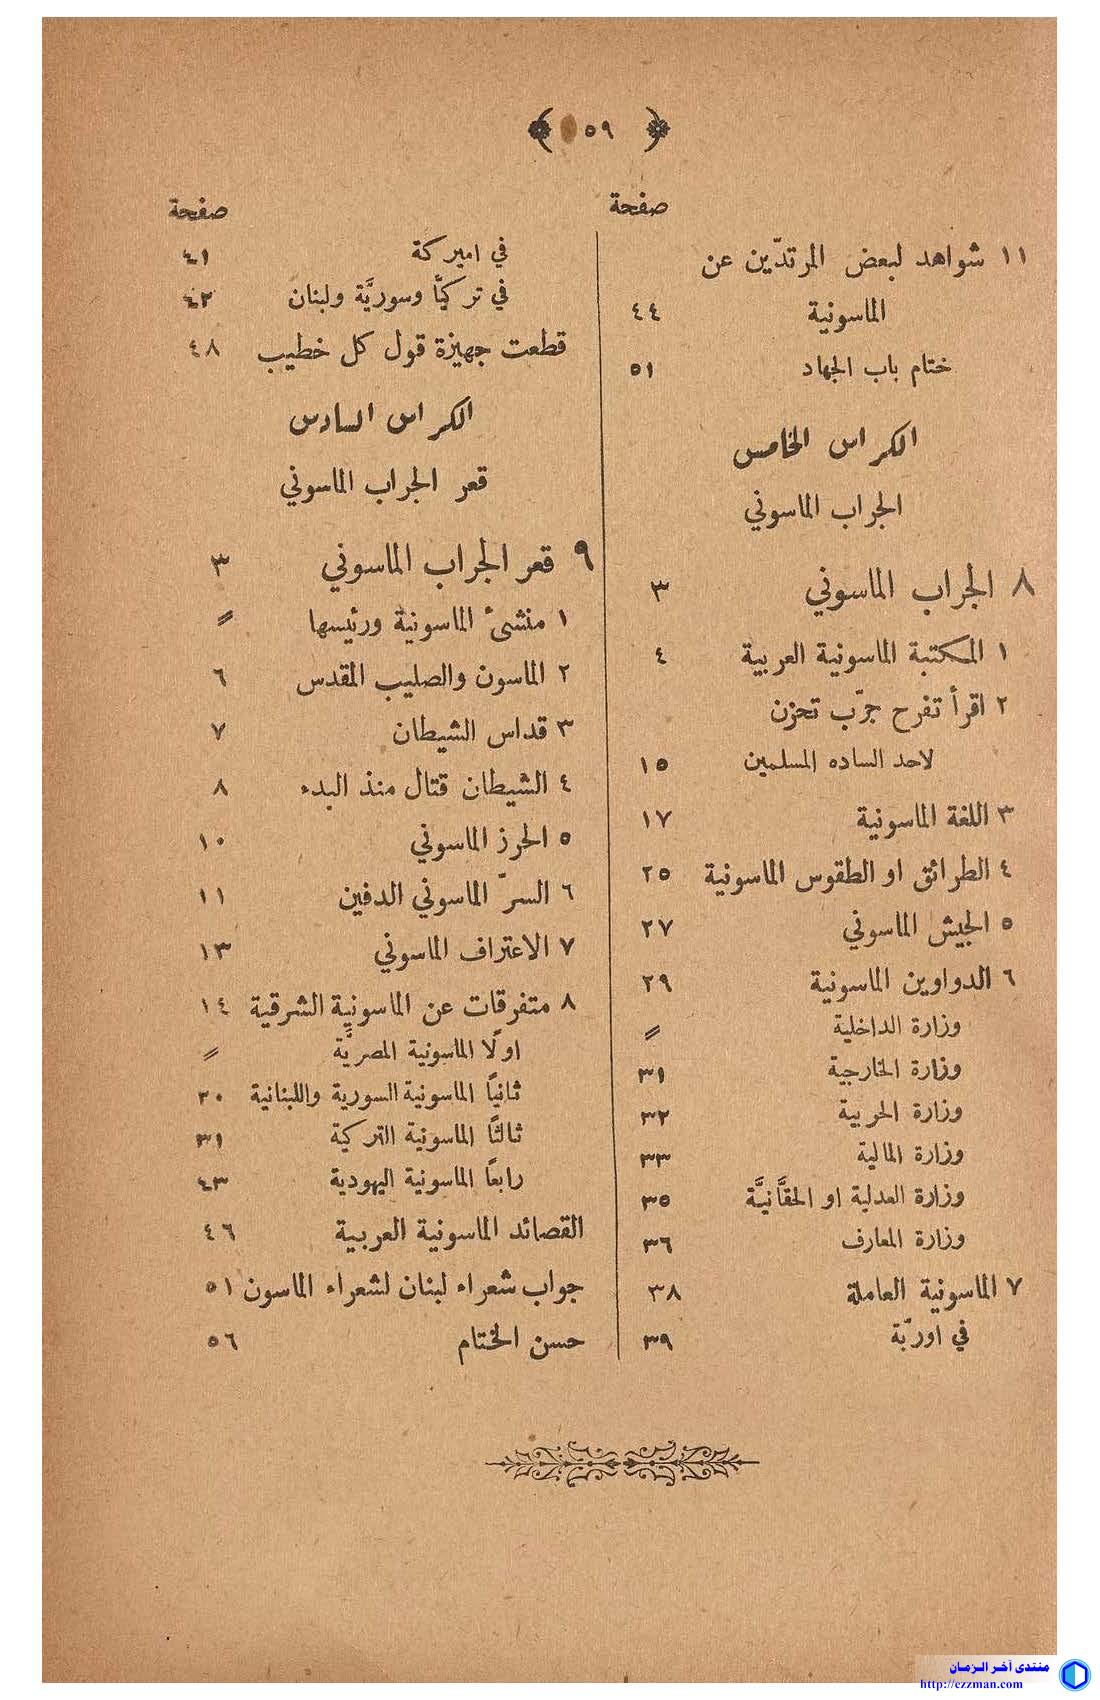 ﴿ ٥٩ ﴾
صفحة
١١ شواهد لبعض المرتدّين عن
الماسونية ٤٤
ختام باب الجهاد ٥١
الكراس الخامس
الجراب الماسوني
٨ الجراب الماسوني ٣
١ المكتبة الماسونية العربية ٤
٢ اقرأ تفرح جرّب تحزن
لاحد الساده المسلمين ١٥
٣ اللغة الماسونية ١٧
٤ الطرائق او الطقوس الماسونية ٢٥
٥ الجيش الماسوني ٢٧
٦ الدواوين الماسونية ٢٩
وزارة الداخلية 〃
وزارة الخارجية ٣١
وزارة الحربية ٣٢
وزارة المالية ٣٣
وزارة العدلية او الحقَّانيَّة ٣٥
وزارة المعارف ٣٦
٧ الماسونية العاملة ٣٨
في اوربّة ٣٩
صفحة
في اميركة ٤١
في تركيَّا وسوريَّة ولبنان ٤٢
قطعت جهيزة قول كل خطيب ٤٨
الكراس السادس
قعر الجراب الماسوني
٩ قعر الجراب الماسوني ٣
١ منشئ الماسونية ورئيسها 〃
٢ الماسون والصليب المقدس ٦
٣ قداس الشيطان ٧
٤ الشيطان قتال منذ البدء ٨
٥ الحرز الماسوني ١٠
٦ السرّ الماسوني الدفين ١١
٧ الاعتراف الماسوني ١٣
٨ متفرقات عن الماسونية الشرقية ١٤
اولًا الماسونية المصريَّة 〃
ثانيًا الماسونية السورية واللبنانية ٢٠
ثالثًا الماسونية التركية ٣١
رابعًا الماسونية اليهودية ٤٣
القصائد الماسونية العربية ٤٦
جواب شعراء لبنان لشعراء الماسون ٥١
حسن الختام ٥٦
منتدى آخر الزمان
http://ezzman.com